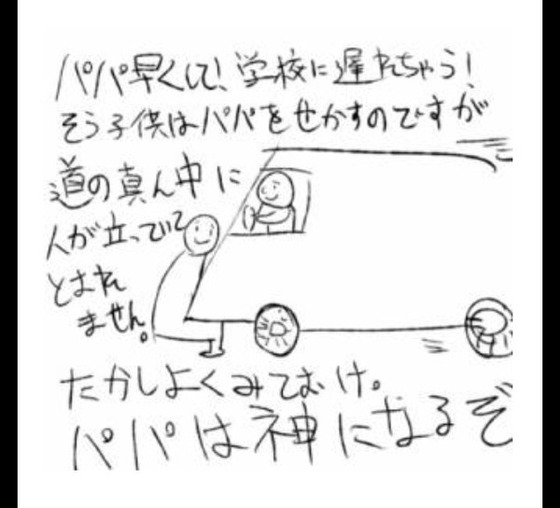 パパ早くして!学校に遅れちゃう!
そう子供はパパをせかすのですが
道の真ん中に
人が立っていて
とおれ
ません。
たかしよくみておけ。
パパは神になるぞ